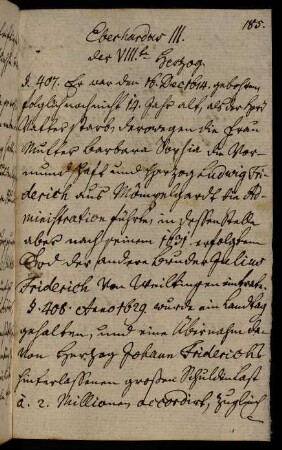 185.
Eberhardus III.
der VIII.te Herzog.
§. 407. Er war den 16. Dec. 1614. gebohren
folglich noch nicht 14. Jahr alt, als der Herr
Vatter starb, derowegen die Frau
Mutter Barbara Sophie die Vor-
mundschaft und Herzog Ludwig Fri-
derich aus Mömpelgardt die Ad-
ministration führte, in dessen Stelle
aber nach seinem 1631. erfolgtem
Tod der andere Bruder Julius
Friderich von Weiltingen eintrate.
§. 408. Anno 1629. wurde ein Landtag
gehalten, und eine Übernahm der
von Herzog Johann Friderichs
hinterlassenen großen Schuldenlast
à. 2. Millionen accordirt, zugleich